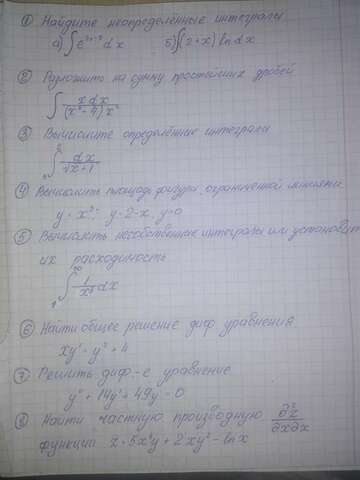 ① Найдите неопределённые интегралы
а) ∫ e dx б) ∫ (2+x) ln dx
② Разложить на сумму простейших дробей
∫ x dx / (x² - 4) x²
③ Вычислите определённые интегралы
∫ dx / √x+1
④ Вычислить площадь фигуры, ограниченной линиями
y = x²; y = 2-x, y=0
⑤ Вычислить несобственные интегралы или установить
их расходимость
∫ 1/x² dx
⑥ Найти общее решение диф. уравнения
xy' = y² + 4
⑦ Решить диф-е уравнение
y'' + 14y' + 49y = 0
⑧ Найти частную производную ∂²z / ∂x∂x
функции z = 5x y + 2 xy² - ln x